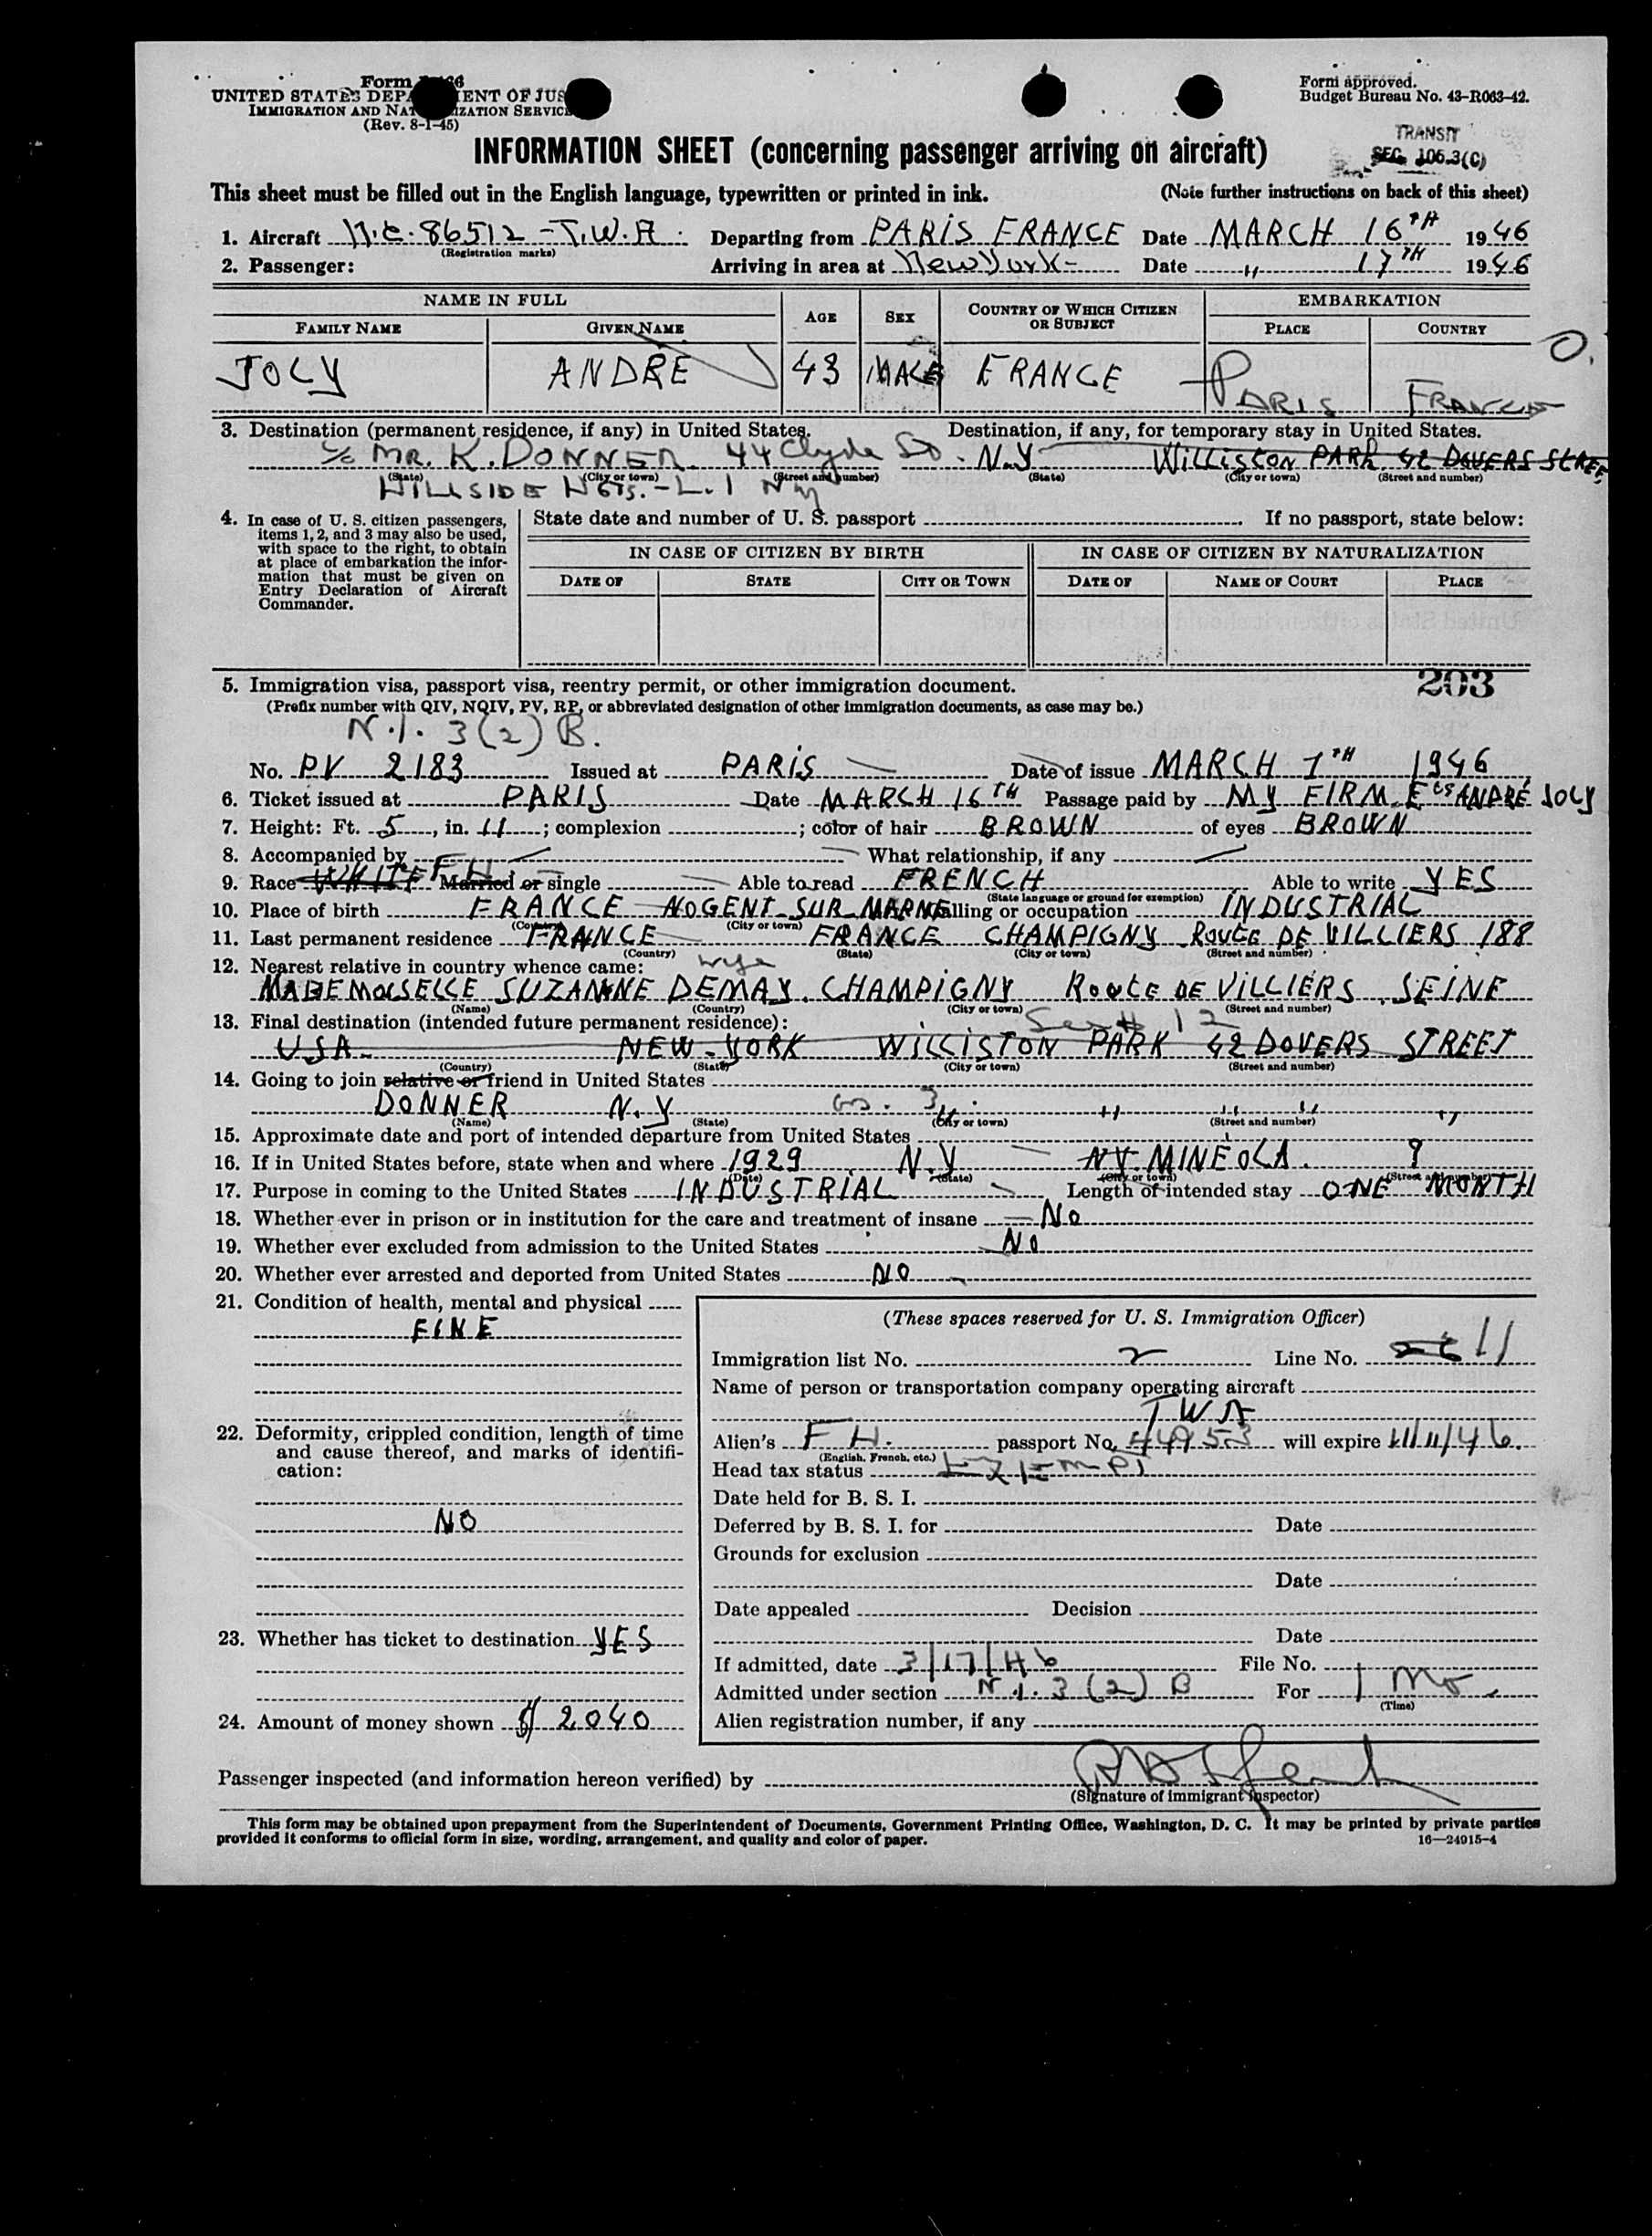 Form I-466
UNITED STATES DEPARTMENT OF JUSTICE
IMMIGRATION AND NATURALIZATION SERVICE
(Rev. 8-1-45)
Form approved.
Budget Bureau No. 43-R063-42.
TRANSIT
SEC. 106.3(C)
INFORMATION SHEET (concerning passenger arriving on aircraft)
This sheet must be filled out in the English language, typewritten or printed in ink. (Note further instructions on back of this sheet)
1. Aircraft N.C. 86512 - T.W.A. Departing from PARIS FRANCE Date MARCH 16TH 1946
(Registration marks)
2. Passenger: Arriving in area at New York - Date " 17TH 1946
NAME IN FULL AGE SEX COUNTRY OF WHICH CITIZEN OR SUBJECT EMBARKATION
FAMILY NAME GIVEN NAME PLACE COUNTRY
JOLY ANDRE 43 MALE FRANCE PARIS FRANCE
O.
3. Destination (permanent residence, if any) in United States. Destination, if any, for temporary stay in United States.
c/o MR. K. DONNER 44 Clyde St. N.Y WILLISTON PARK 42 DOVERS STREE
(State) (City or town) (Street and number) (State) (City or town) (Street and number)
HILLSIDE HGTS. - L.I NY
4. In case of U. S. citizen passengers, items 1, 2, and 3 may also be used, with space to the right, to obtain at place of embarkation the information that must be given on Entry Declaration of Aircraft Commander.
State date and number of U. S. passport If no passport, state below:
IN CASE OF CITIZEN BY BIRTH IN CASE OF CITIZEN BY NATURALIZATION
DATE OF STATE CITY OR TOWN DATE OF NAME OF COURT PLACE
203
5. Immigration visa, passport visa, reentry permit, or other immigration document.
(Prefix number with QIV, NQIV, PV, RP, or abbreviated designation of other immigration documents, as case may be.)
N.I. 3(2) B.
No. PV 2183 Issued at PARIS Date of issue MARCH 7TH 1946
6. Ticket issued at PARIS Date MARCH 16TH Passage paid by MY FIRM Ets ANDRÉ JOLY
7. Height: Ft. 5, in. 11; complexion ; color of hair BROWN of eyes BROWN
8. Accompanied by What relationship, if any
9. Race WHITE FH Married or single Able to read FRENCH Able to write YES
(State language or ground for exemption)
10. Place of birth FRANCE NOGENT-SUR-MARNE Calling or occupation INDUSTRIAL
(Country) (City or town)
11. Last permanent residence FRANCE FRANCE CHAMPIGNY ROUTE DE VILLIERS 188
(Country) (State) (City or town) (Street and number)
12. Nearest relative in country whence came: wife
MADEMOISELLE SUZANNE DEMAY. CHAMPIGNY ROUTE DE VILLIERS. SEINE
(Name) (Country) (City or town) (Street and number)
13. Final destination (intended future permanent residence): 12
USA - NEW-YORK WILLISTON PARK 42 DOVERS STREET
(Country) (State) (City or town) (Street and number)
14. Going to join relative or friend in United States
DONNER N.Y 3 " " " " "
(Name) (State) (City or town) (Street and number)
15. Approximate date and port of intended departure from United States
16. If in United States before, state when and where 1929 N.Y NY. MINEOLA. ?
(Date) (State) (City or town) (Street and number)
17. Purpose in coming to the United States INDUSTRIAL Length of intended stay ONE MONTH
18. Whether ever in prison or in institution for the care and treatment of insane No
19. Whether ever excluded from admission to the United States No
20. Whether ever arrested and deported from United States NO
21. Condition of health, mental and physical
FINE
22. Deformity, crippled condition, length of time and cause thereof, and marks of identification:
NO
23. Whether has ticket to destination YES
24. Amount of money shown $ 2040
(These spaces reserved for U. S. Immigration Officer)
Immigration list No. 2 Line No. 11
Name of person or transportation company operating aircraft
TWA
Alien's FH. passport No. 44953 will expire 11/11/46.
(English, French, etc.)
Head tax status EXEMPT
Date held for B. S. I.
Deferred by B. S. I. for Date
Grounds for exclusion
Date
Date appealed Decision
Date
If admitted, date 3/17/46 File No.
Admitted under section N.I. 3 (2) B For 1 Mo.
(Time)
Alien registration number, if any
Passenger inspected (and information hereon verified) by
(Signature of immigrant inspector)
This form may be obtained upon prepayment from the Superintendent of Documents, Government Printing Office, Washington, D. C. It may be printed by private parties
provided it conforms to official form in size, wording, arrangement, and quality and color of paper. 16—24915-4